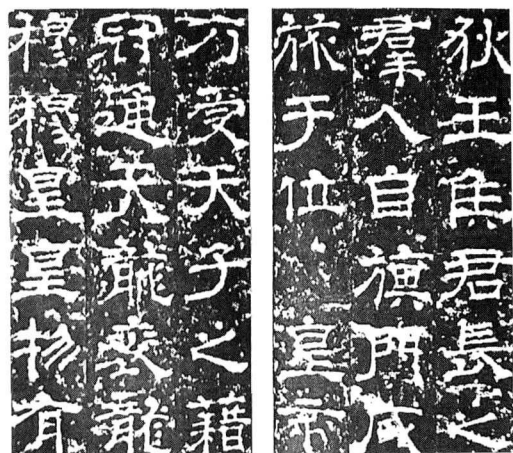 狄王侯君長之
羣入自旗門咸
旅于位皇帝
乃受天子之藉
冠通天襲衮龍
穆穆皇皇物有